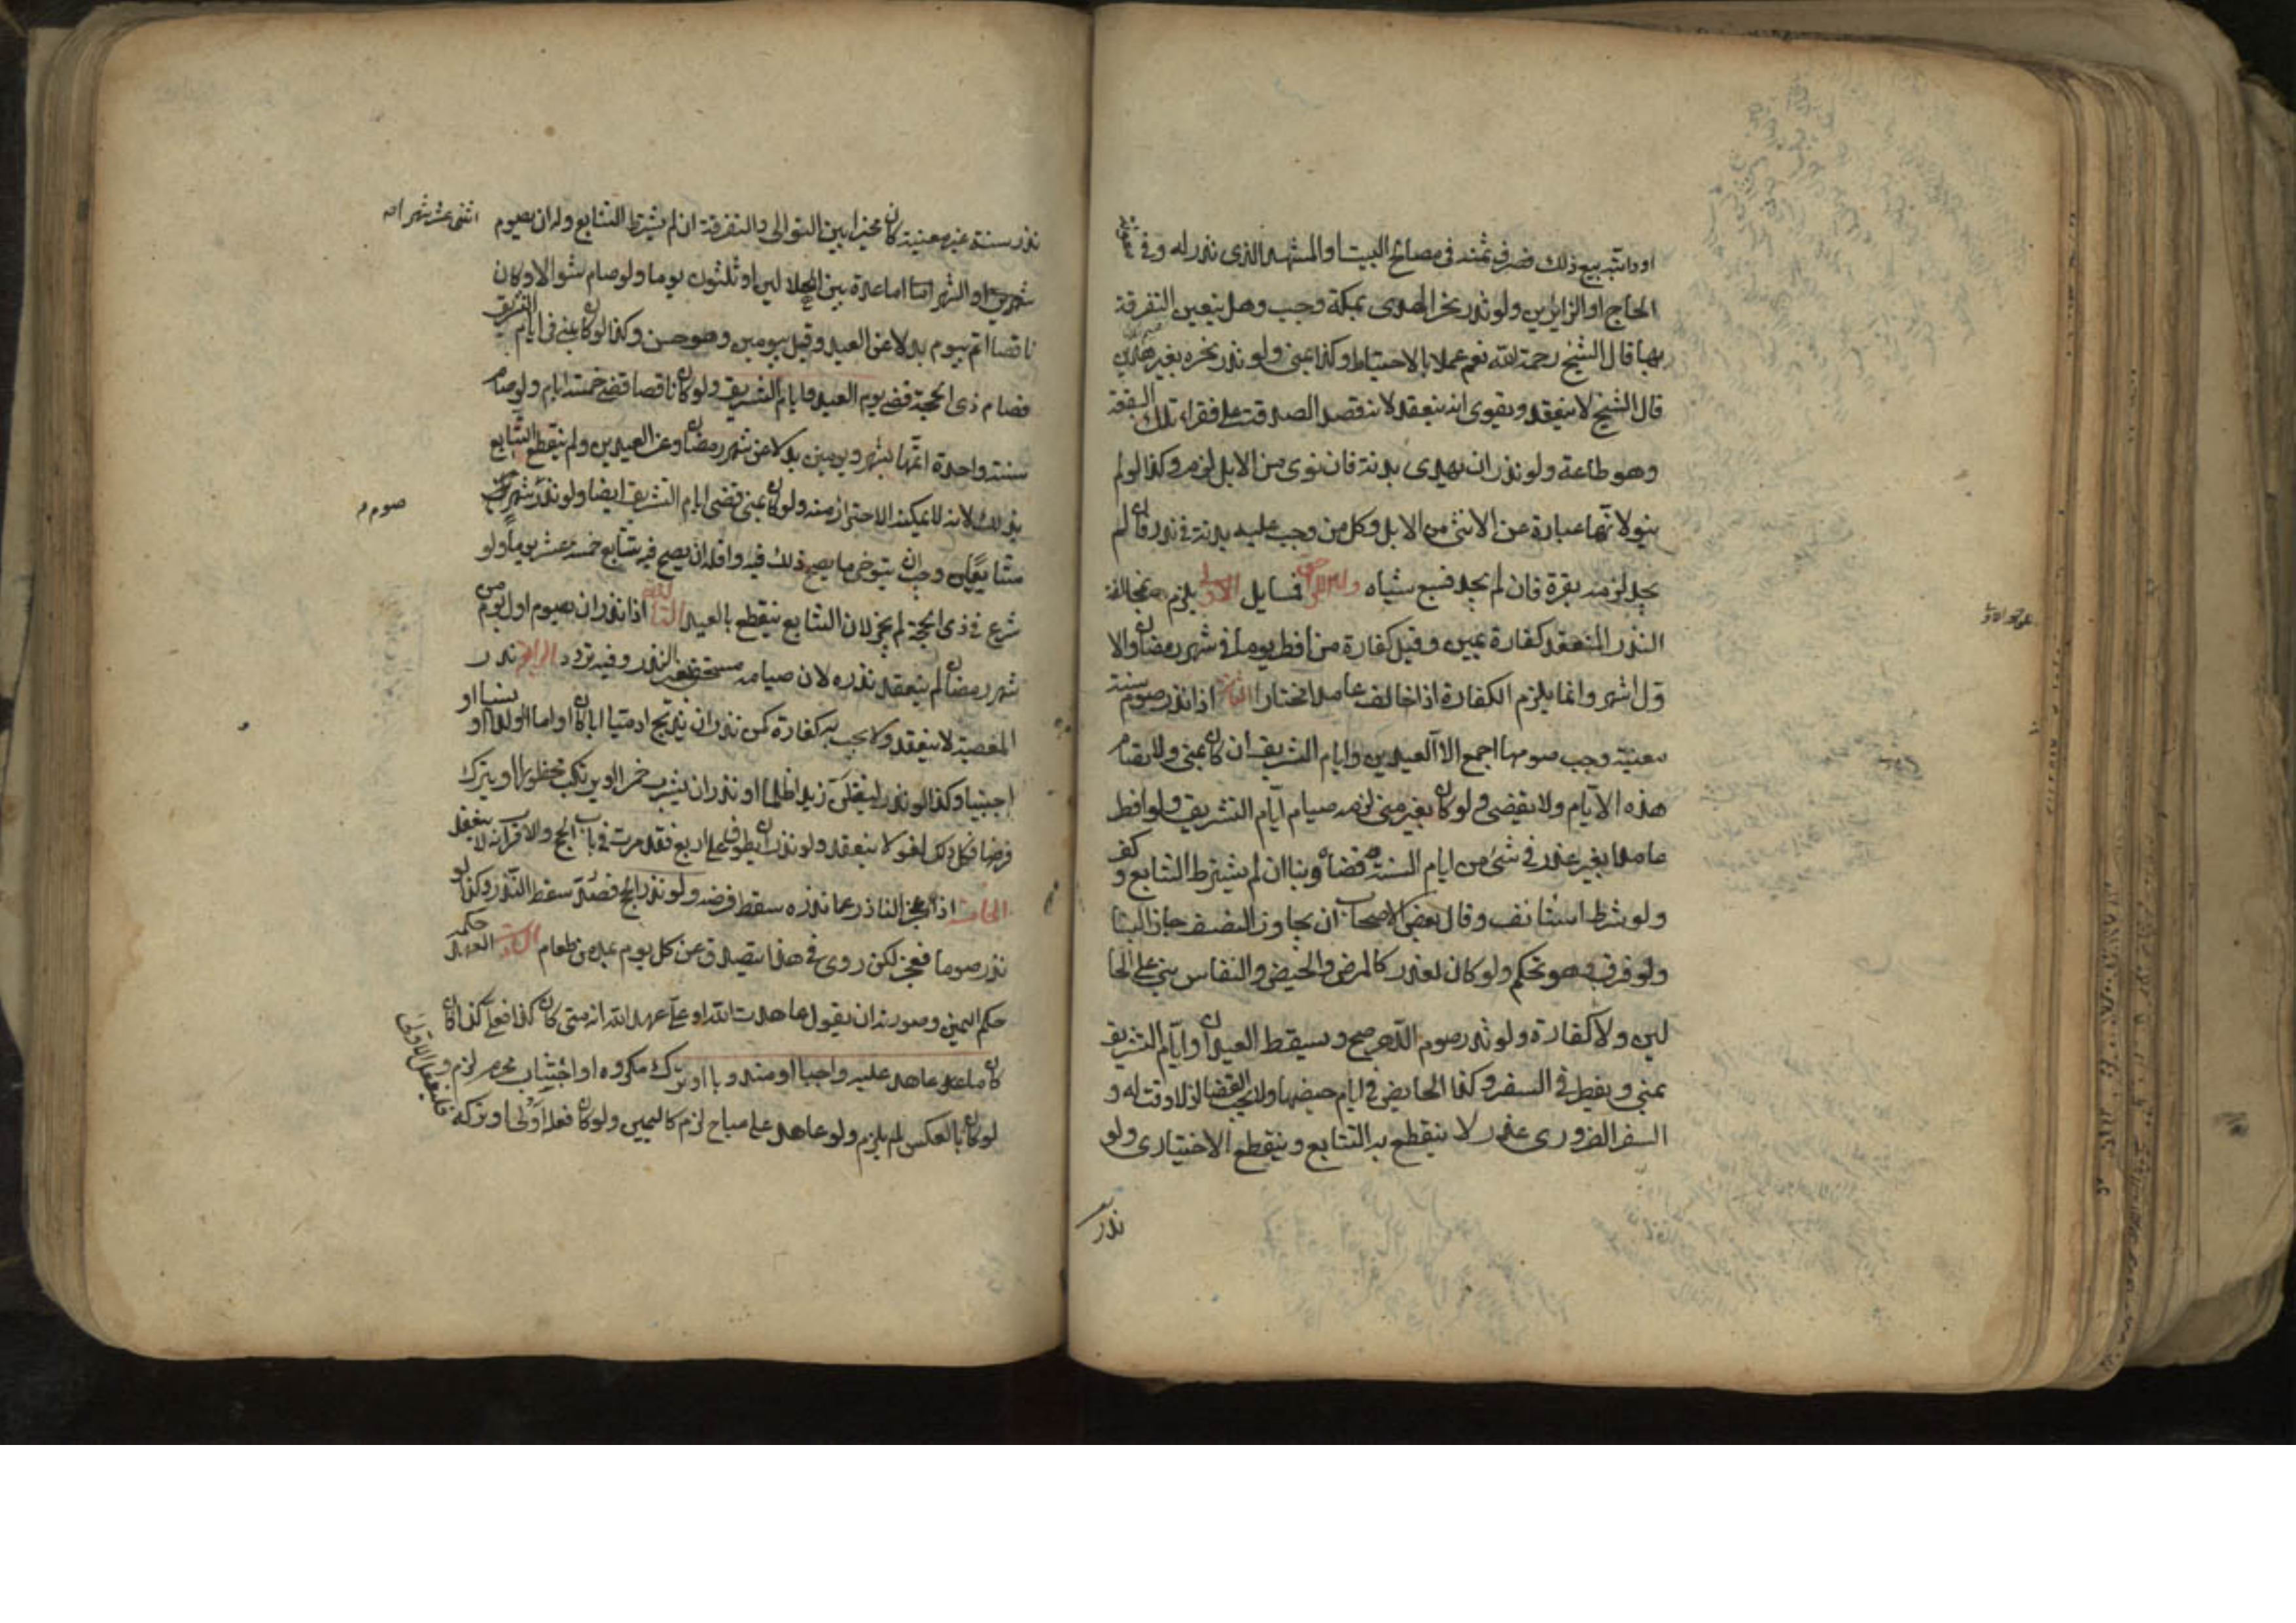 او دابته بيع ذلك فصرف ثمنه فى مصالح البيت او المشهد الذى نذر له وفى معونة
الحاج او الزايرين ولو نذر نحر الهدى بمكة وجب وهل يتعين التفرقة
بها قال الشيخ رحمه الله نعم عملا بالاحتياط وكذا بمنى ولو نذر نحره بغير هذين
قال الشيخ لا ينعقد ويقوى انه ينعقد لانه قصد الصدقة على فقراء تلك البقعة
وهو طاعة ولو نذر ان يهدى بدنة فان نوى من الابل لزم وكذا لو لم
ينو لانها عبارة عن الانثى من الابل وكل من وجب عليه بدنة فى نذر فان لم
يجد لزمه بقرة فان لم يجد فسبع شياه واما اللواحق فمسايل الاولى يلزم بمخالفة
النذر المنعقد كفارة يمين وقيل كفارة من افطر يوما فى شهر رمضان والا
ول اشهر وانما يلزم الكفارة اذا خالف عامدا مختارا الثانية اذا نذر صوم سنة
معينة وجب صومها اجمع الا العيدين وايام التشريق ان كان بمنى ولا يصام
هذه الايام ولا يقضى ولو كان بغير منى لزمه صيام ايام التشريق ولو افطر
عامدا بغير عذر فى شئ من ايام السنة قضاه وبنا ان لم يشترط التتابع وكفر
ولو شرط استانف وقال بعض الاصحاب ان يجاوز النصف جاز البنا
ولو فرق فهو تحكم ولو كان لعذر كالمرض والحيض والنفاس بنى على الحا
لين ولا كفارة ولو نذر صوم الدهر صح ويسقط العيدان وايام التشريق
بمنى ويفطر فى السفر وكذا الحايض فى ايام حيضها ولا يجب القضا اذ لا وقت له و
السفر الضرورى عذر لا ينقطع به التتابع وينقطع الاختيارى ولو
نذر
نذر سنة غير معينة كان مخيرا بين التوالى والتفرقة ان لم يشترط التتابع وله ان يصوم اثنى عشر شهرا
والشهر اما عدة بين الهلالين او ثلثون يوما ولو صام شوالا وكان
ناقصا اتم بيوم بدلا عن العيد وقيل بيومين وهو حسن وكذا لو كان بمنى فى ايام التشريق
فصام ذى الحجة قضى يوم العيد وايام التشريق ولو كان ناقصا قضى خمسة ايام ولو صام
سنة واحدة اتمها بشهر ويومين بدلا عن شهر رمضان وعن العيدين ولم ينقطع التتابع
بذلك لانه لا يمكنه الاحتراز منه ولو كان بمنى قضى ايام التشريق ايضا ولو نذر شهرين
صوم
متتابعين وجب ان يتوخى ما يصح ذلك فيه واقله ان يصح فيه تتابع خمسة عشر يوما ولو
شرع فى ذى الحجة لم يجز لان التتابع ينقطع بالعيد الثالثة اذا نذر ان يصوم اول يوم من
شهر رمضان لم ينعقد نذره لان صيامه مستحق بغير النذر وفيه تردد الرابعة نذر
المعصية لا ينعقد ولا يجب به كفارة كمن نذر ان يذبح ادميا ابا كان او اما او ولدا او نسيبا او
اجنبيا وكذا لو نذر ليقتلن زيدا ظلما او نذر ان يشرب خمرا او يرتكب محظورا او يترك
فرضا فكل ذلك لغو لا ينعقد ولو نذر ان يطوف على اربع فقد مرت فى باب الحج والاقرب انه لا ينعقد
الخامسة اذا عجز الناذر عما نذره سقط فرضه ولو نذر الحج فصد سقط النذر وكذا لو
نذر صوما فعجز لكن روى فى هذا يتصدق عن كل يوم بمد من طعام السادسة العهد حكمه
حكم اليمين وصورته ان يقول عاهدت الله او على عهد الله انه متى كان كذا فعلى كذا فان
كان ما عاهد عليه واجبا او مندوبا او ترك مكروه او اجتناب محرم لزم و
لو كان بالعكس لم يلزم ولو عاهد على مباح لزم كاليمين ولو كان فعله اولى او تركه فليفعل الاولى